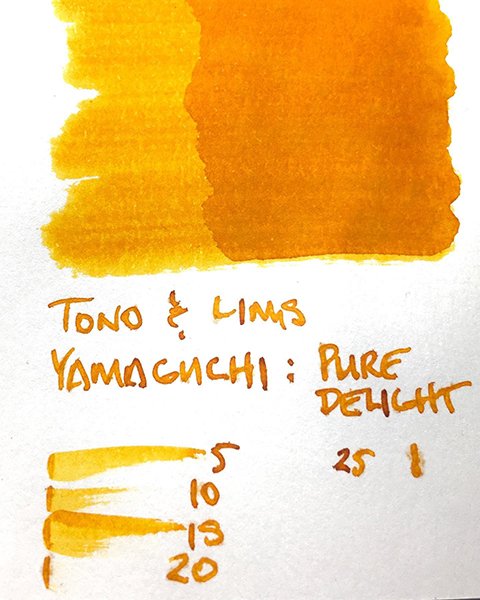 TONO & LIMS
YAMAGUCHI: PURE
DELIGHT
5 25
10
15
20